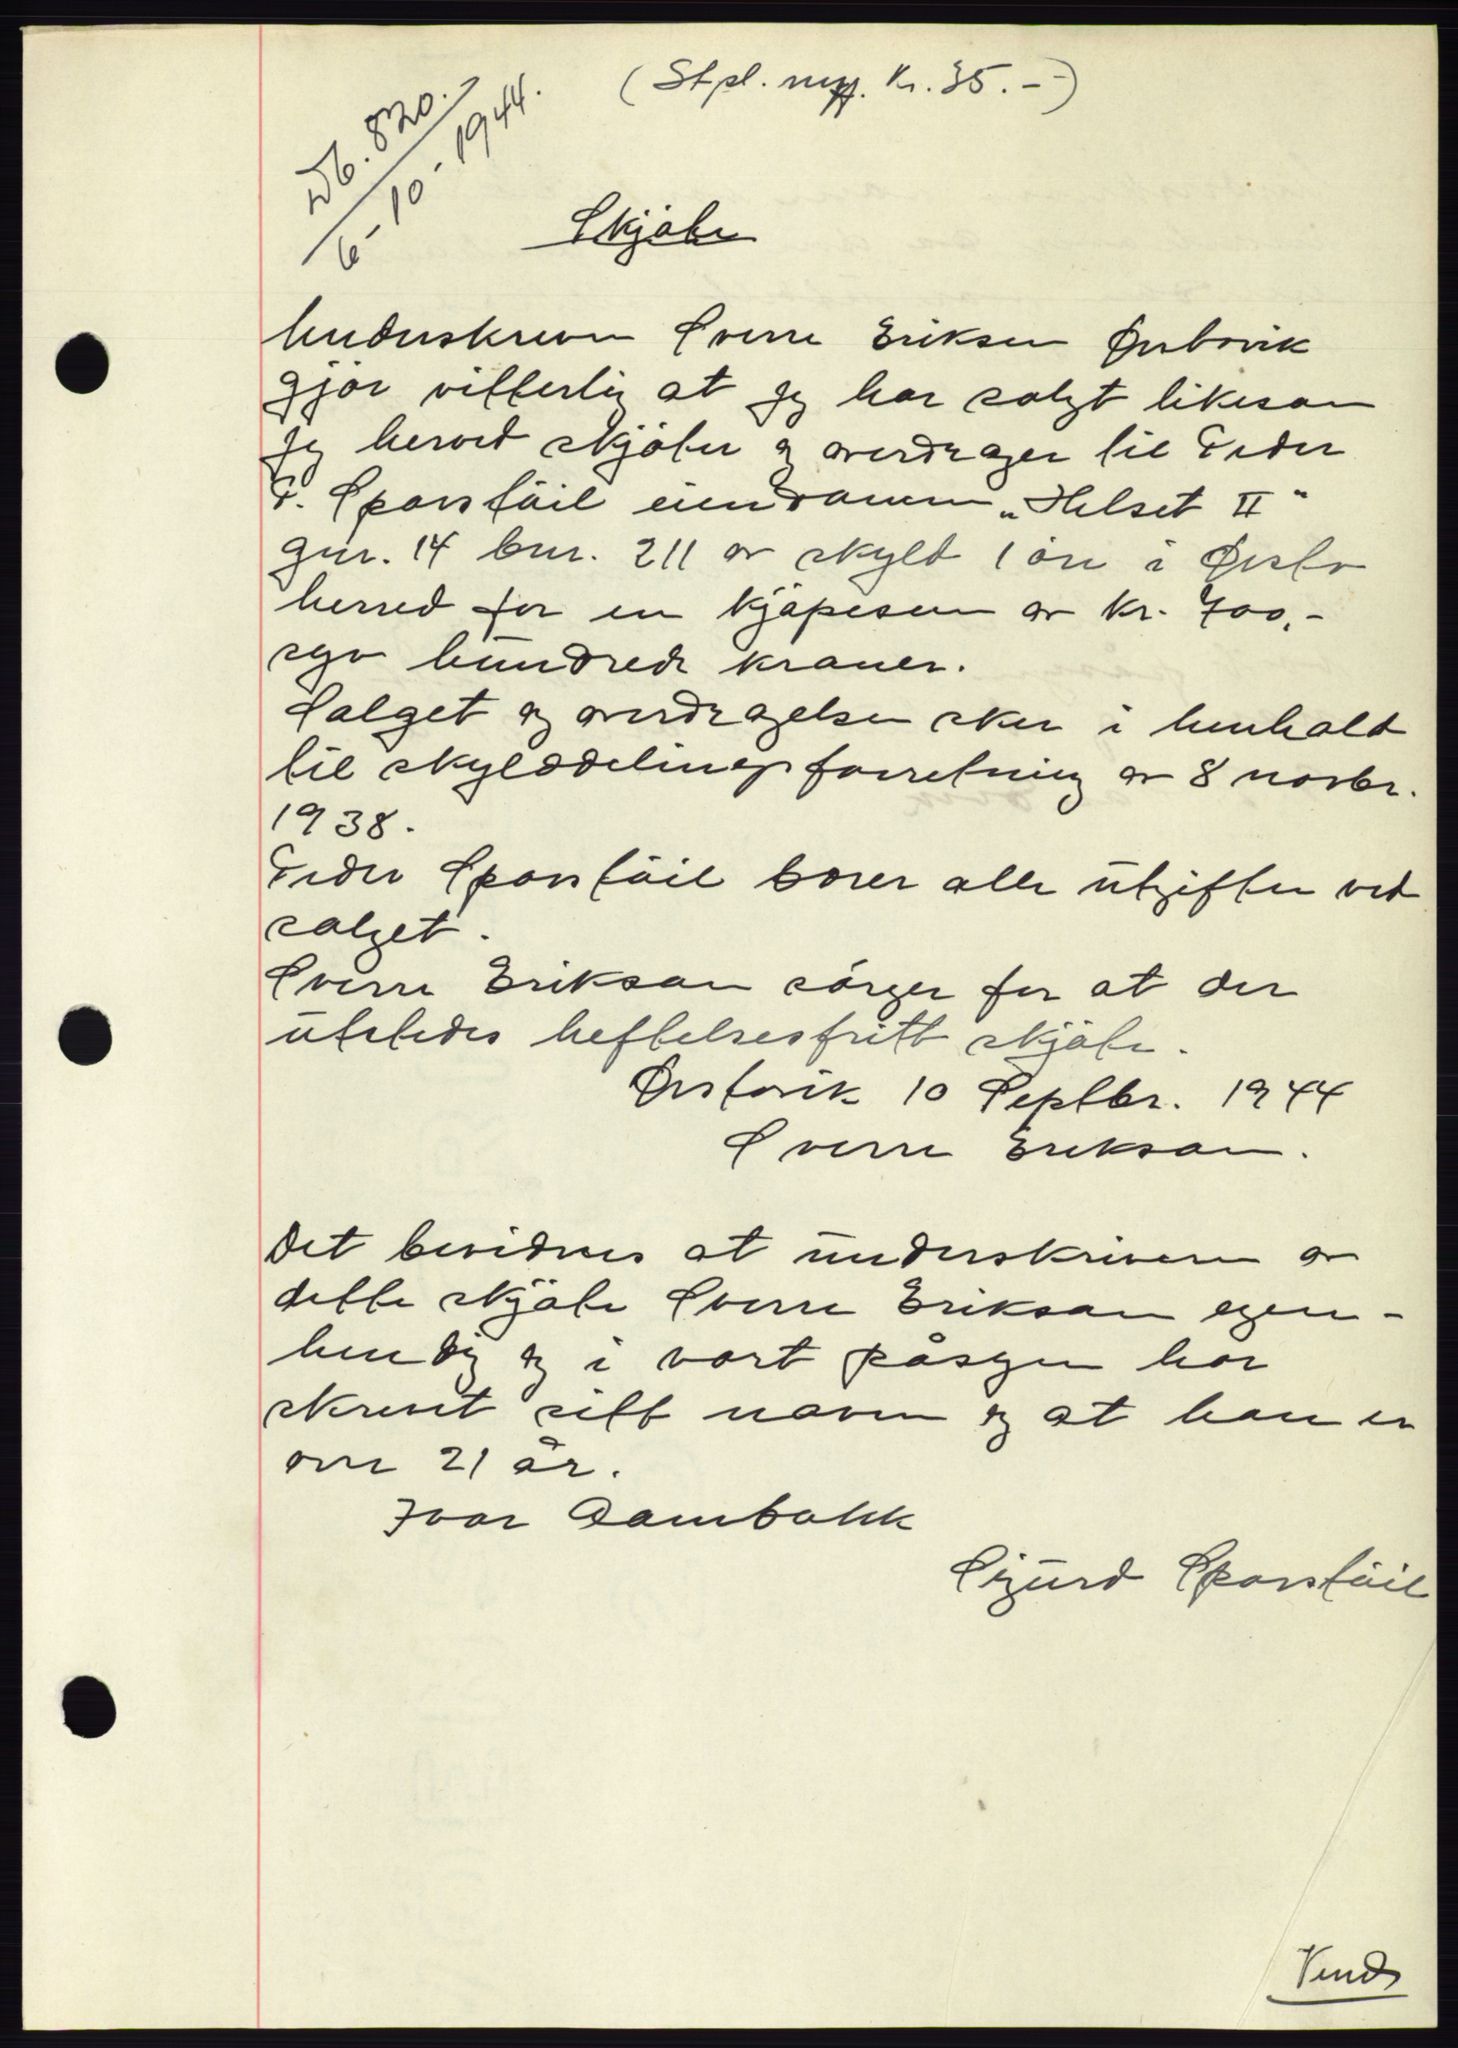 (Stpl. mrk. Kr. 35.--)
Db. 820.
6-10-1944.
Skjøte
Underskreven Sverre Eriksen Ørstavik
gjör vitterlig at jeg har solgt likesom
jeg herved skjöter og overdrager til Peder
P. Sporstöil eiendommen „Helset II"
gnr. 14 bnr. 211 av skyld 1 öre i Ørsta
herred for en kjöpesum av kr. 700,-
syv hundrede kroner.
Salget og overdragelsen sker i henhold
til skylddelingsforretning av 8 novbr.
1938.
Peder Sporstöil bærer alle utgifter ved
salget.
Sverre Eriksen sörger for at der
utstedes heftelsesfritt skjöte.
Ørstavik 10 Septbr. 1944
Sverre Eriksen.
Det bevidnes at underskriveren av
dette skjöte Sverre Eriksen egen-
hendig og i vort påsyn har
skrevet sitt navn og at han er
over 21 år.
Ivar Aambakk
Sigurd Sporstöil
Vend